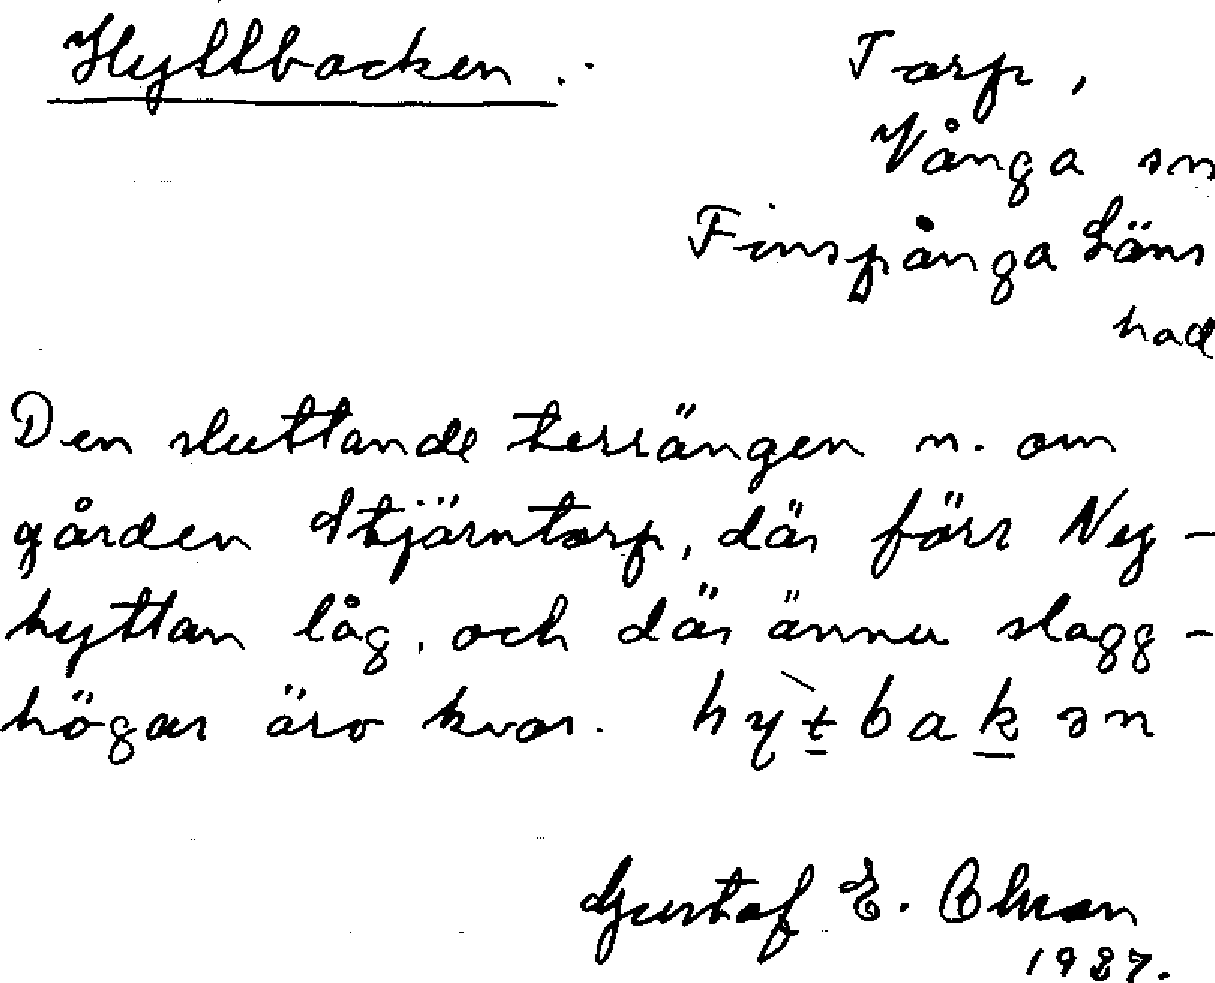 Hyttbacken.
Torp,
Vånga sn
Finspånga Läns
had
Den sluttande terrängen n. om
gården Stjärntorp, där förr Ny-
hyttan låg, och där ännu slagg-
högar äro kvar. hytbakən
Gustaf E. Olsson
1937.